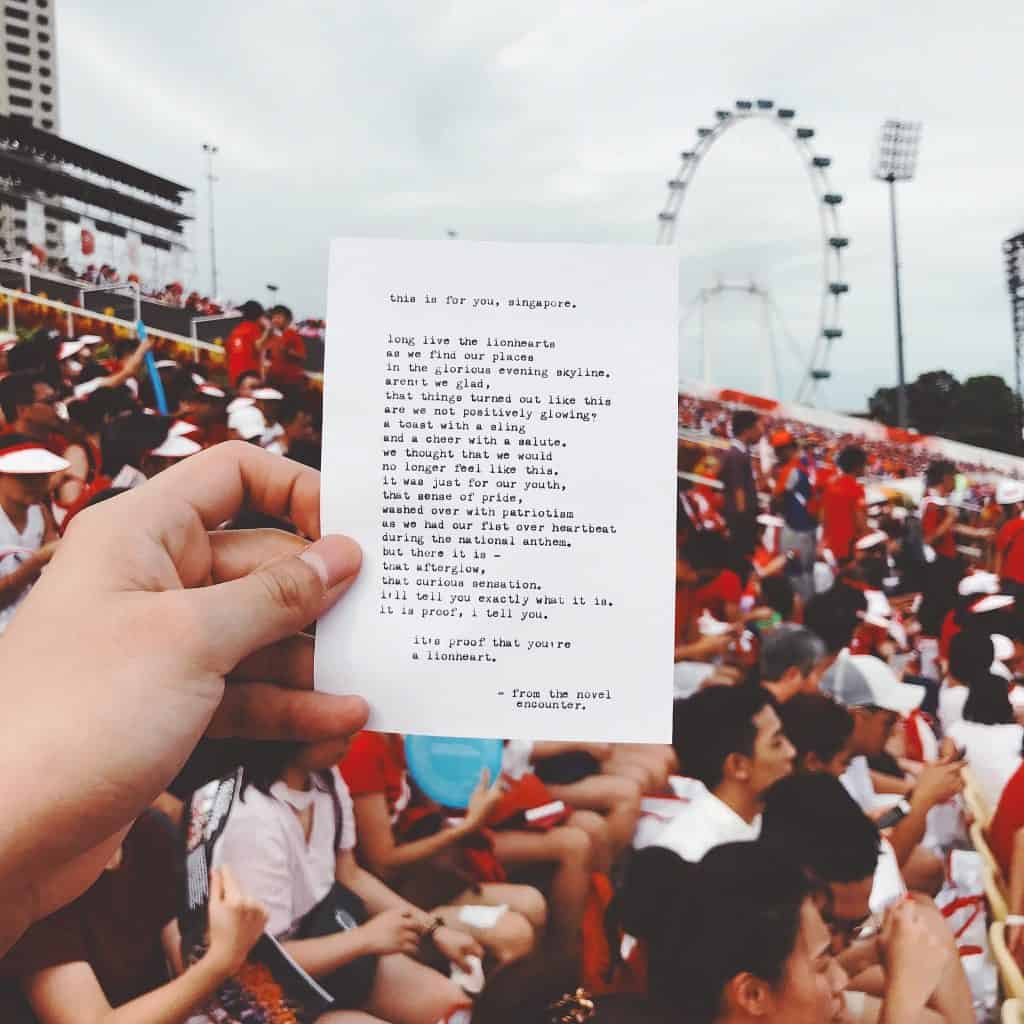 this is for you, singapore.
long live the lionhearts
as we find our places
in the glorious evening skyline.
aren't we glad,
that things turned out like this
are we not positively glowing?
a toast with a sling
and a cheer with a salute.
we thought that we would
no longer feel like this.
it was just for our youth,
that sense of pride,
washed over with patriotism
as we had our fist over heartbeat
during the national anthem.
but there it is -
that afterglow,
that curious sensation.
i'll tell you exactly what it is.
it is proof, i tell you.
it's proof that you're
a lionheart.
- from the novel
encounter.